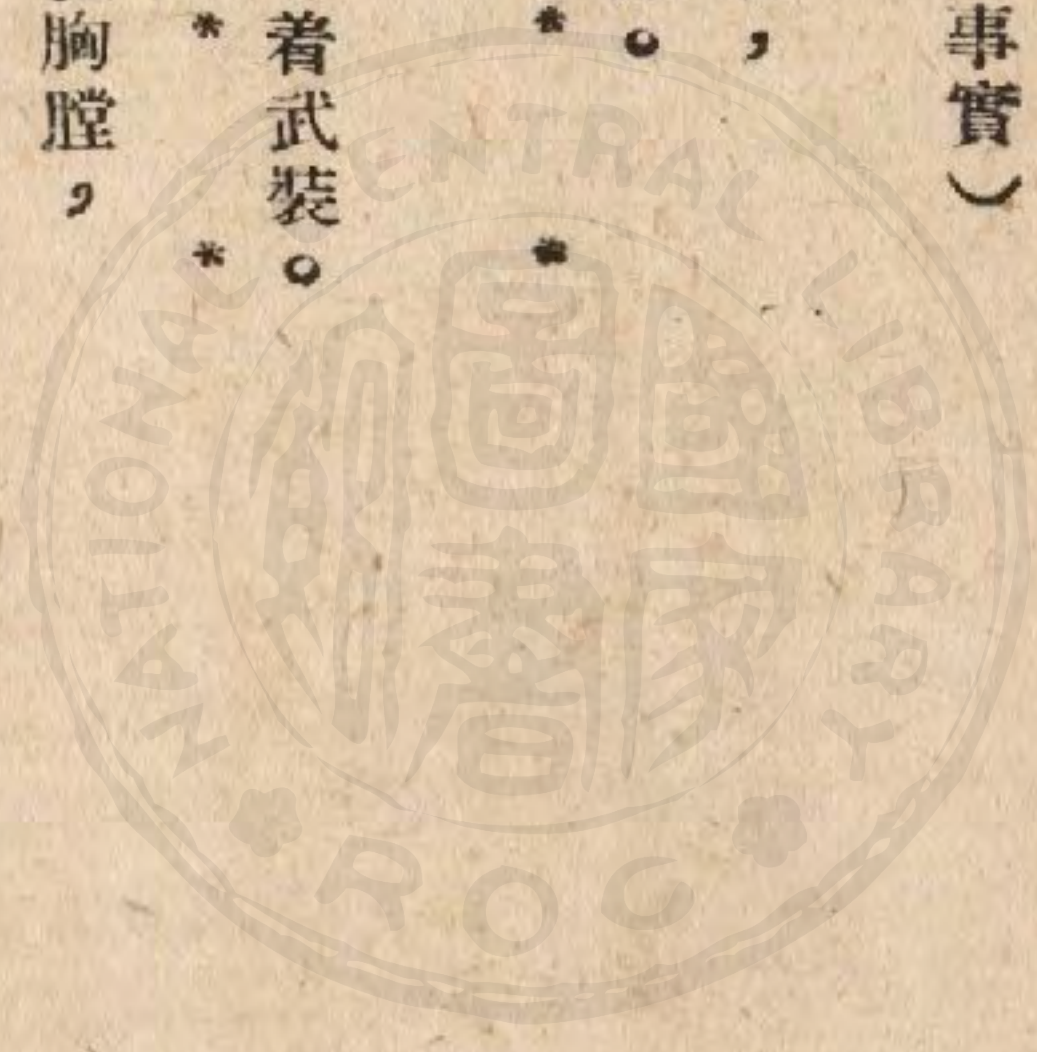 事實）
，
。
＊　＊
着武裝。
＊　＊
胸膛，
NATIONAL CENTRAL LIBRARY
ROC
國家圖書